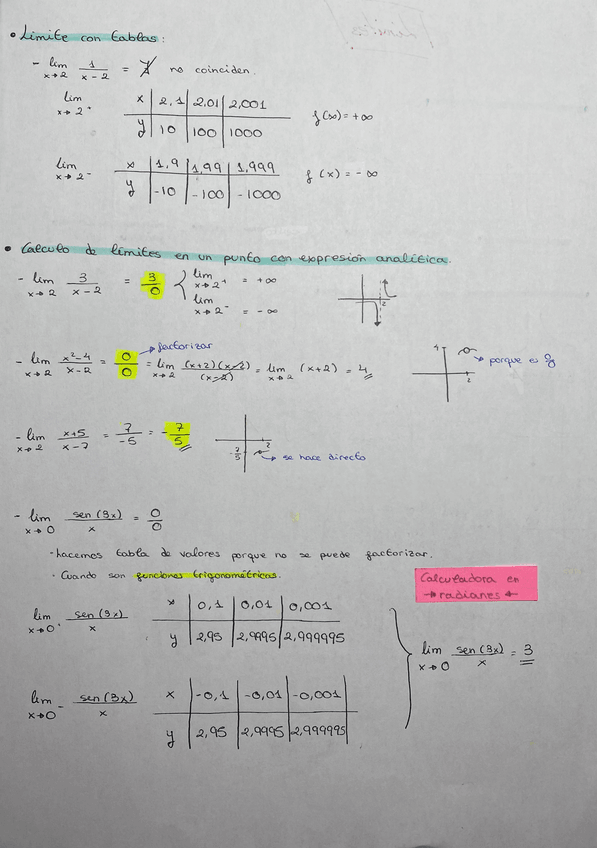 • Límite con tablas:
- lim x→2 1/(x-2) = ∄ no coinciden.
lim x→2⁺ x | 2,1 | 2,01 | 2,001 f(x) = +∞
y | 10 | 100 | 1000
lim x→2⁻ x | 1,9 | 1,99 | 1,999 f(x) = -∞
y | -10 | -100 | -1000
• Calculo de límites en un punto con expresión analítica.
- lim x→2 3/(x-2) = 3/0 { lim x→2⁺ = +∞
lim x→2⁻ = -∞
2
→ factorizar
- lim x→2 (x²-4)/(x-2) = 0/0 = lim x→2 (x+2)(x-2)/(x-2) = lim x→2 (x+2) = 4
4 2 → porque es
- lim x→2 (x+5)/(x-7) = 7/-5 = -7/5
-7/5 2 → se hace directo
- lim x→0 sen(3x)/x = 0/0
- hacemos tabla de valores porque no se puede factorizar.
· Cuando son funciones trigonométricas.
Calculadora en
→ radianes ←
lim x→0⁺ sen(3x)/x x | 0,1 | 0,01 | 0,001
y | 2,95 | 2,9995 | 2,999995
} lim x→0 sen(3x)/x = 3
lim x→0⁻ sen(3x)/x x | -0,1 | -0,01 | -0,001
y | 2,95 | 2,9995 | 2,999995